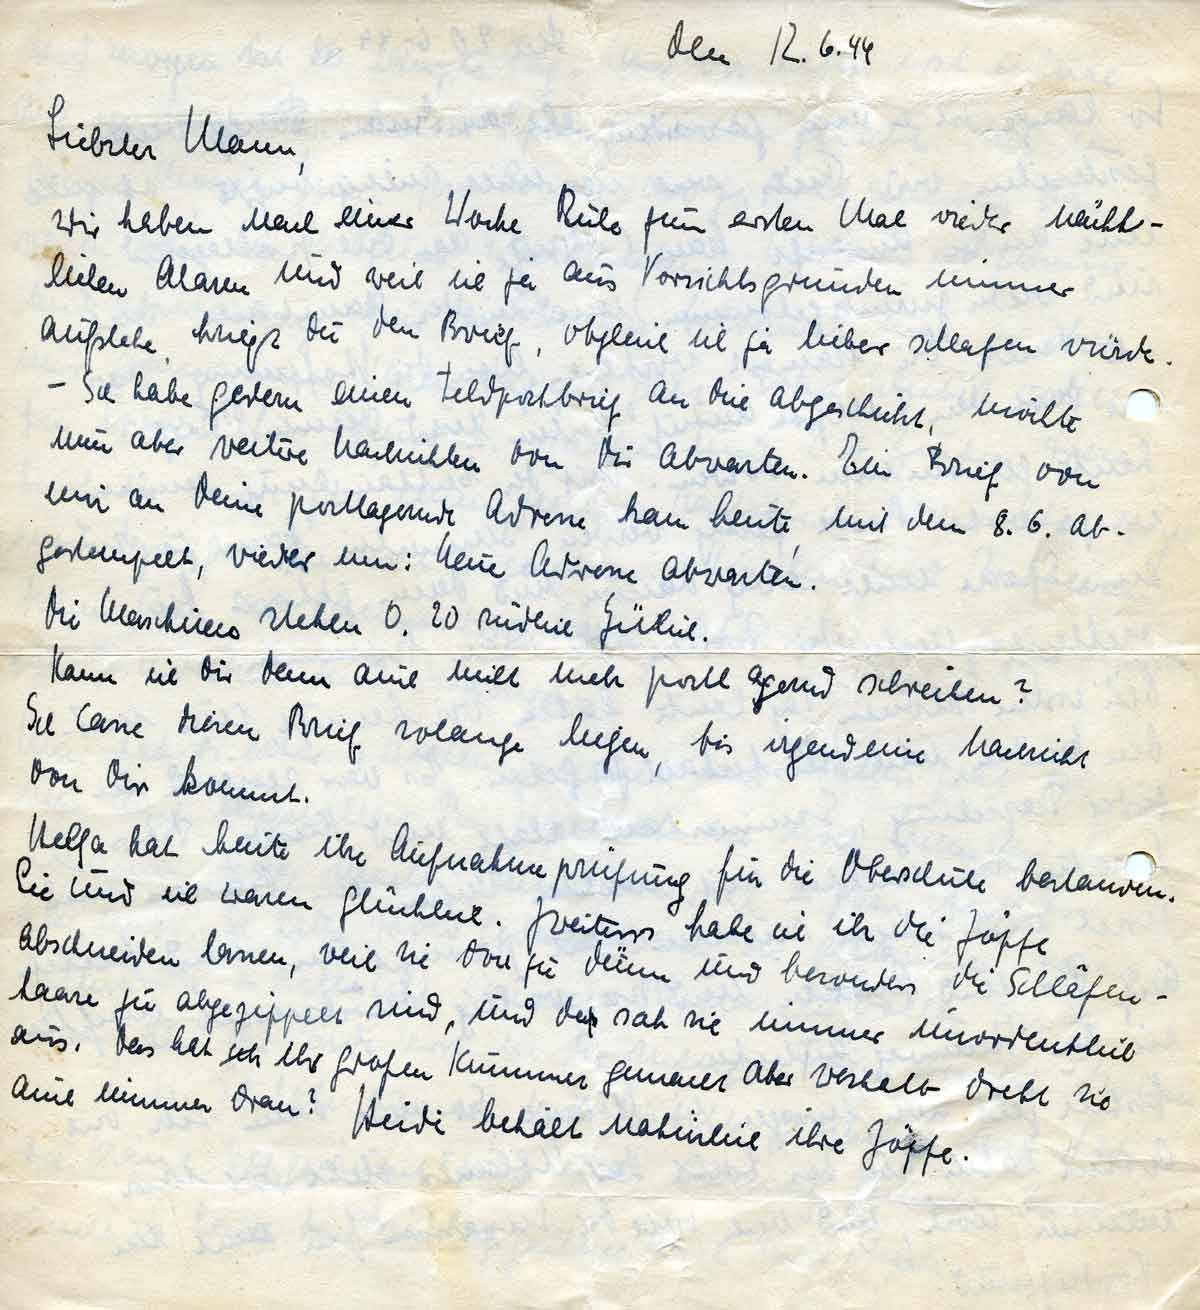 den 12.6.44
Liebster Mann,
wir haben nach einer Woche Ruhe zum ersten Mal wieder nächt-
lichen Alarm und weil ich ja aus Vorsichtsgründen immer
aufstehe, kriegst du den Brief, obgleich ich ja lieber schlafen würde.
- Ich habe gestern einen Feldpostbrief an dich abgeschickt, wollte
nun aber weitere Nachrichten von dir abwarten. Ein Brief von
mir an deine postlagernde Adresse kam heute, mit dem 8.6. ab-
gestempelt, wieder um: Neue Adresse abwarten.
Die Maschinen stehen 0.20 südlich
Kann ich dir denn auch nicht mehr postlagernd schreiben?
Ich lasse diesen Brief solange liegen, bis irgendeine Nachricht
von dir kommt.
Helga hat heute ihre Aufnahmeprüfung für die Oberschule bestanden.
Sie und ich waren glücklich. Zweitens habe ich ihr die Zöpfe
abschneiden lassen, weil sie zu dünn und besonders die Schläfen-
haare zu abgezippelt sind, und da sah sie immer unordentlich
aus. Das hat ihr großen Kummer gemacht aber weshalb dreht sie
auch immer dran? Heidi behält natürlich ihre Zöpfe.